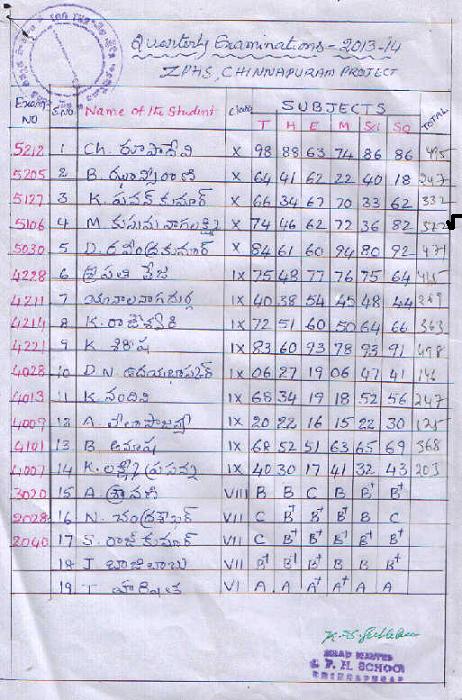 Quarterly Examinations - 2013-14
ZPHS, CHINNAPURAM PROJECT
Exam NO S.No Name of the Student Class SUBJECTS TOTAL
T H E M Sci So
5212 1 Ch. రూపాదేవి X 98 88 63 74 86 86 495
5205 2 B. రాణి X 64 41 62 22 40 18 247
5127 3 K. పవన్ కుమార్ X 66 34 67 70 33 62 332
5106 4 M. కుసుమ నాగలక్ష్మి X 74 46 62 72 36 82
5030 5 D. రవీంద్రకుమార్ X 84 61 60 94 80 92 471
4228 6 IX 75 48 77 76 75 64 415
4211 7 IX 40 38 54 45 48 44 269
4214 8 K. రాజేశ్వరి IX 72 51 60 50 64 66 363
4221 9 K శిరీష IX 83 60 93 78 93 91 498
4028 10 D.N. ఉదయభాస్కర్ IX 06 27 19 06 47 41 146
4013 11 K. నందిని IX 68 34 19 18 52 56 247
4009 12 A. IX 20 22 16 15 22 30 125
4101 13 B IX 68 52 51 63 65 69 368
4007 14 K. లక్ష్మీ ప్రసన్న IX 40 30 17 41 32 43 203
3020 15 A శ్రావణి VIII B B C B B+ B+
2028 16 N. చంద్రశేఖర్ VII C B+ B+ B+ B C
2040 17 S. రాజ్ కుమార్ VII C B+ B+ B+ B+ B+
18 J బాజీబాబు VII B+ B+ B+ B+ B+ B+
19 T హర్షిత VI A A A+ A+ A A
HEAD MASTER
Z. P. H. SCHOOL
CHINNAPURAM